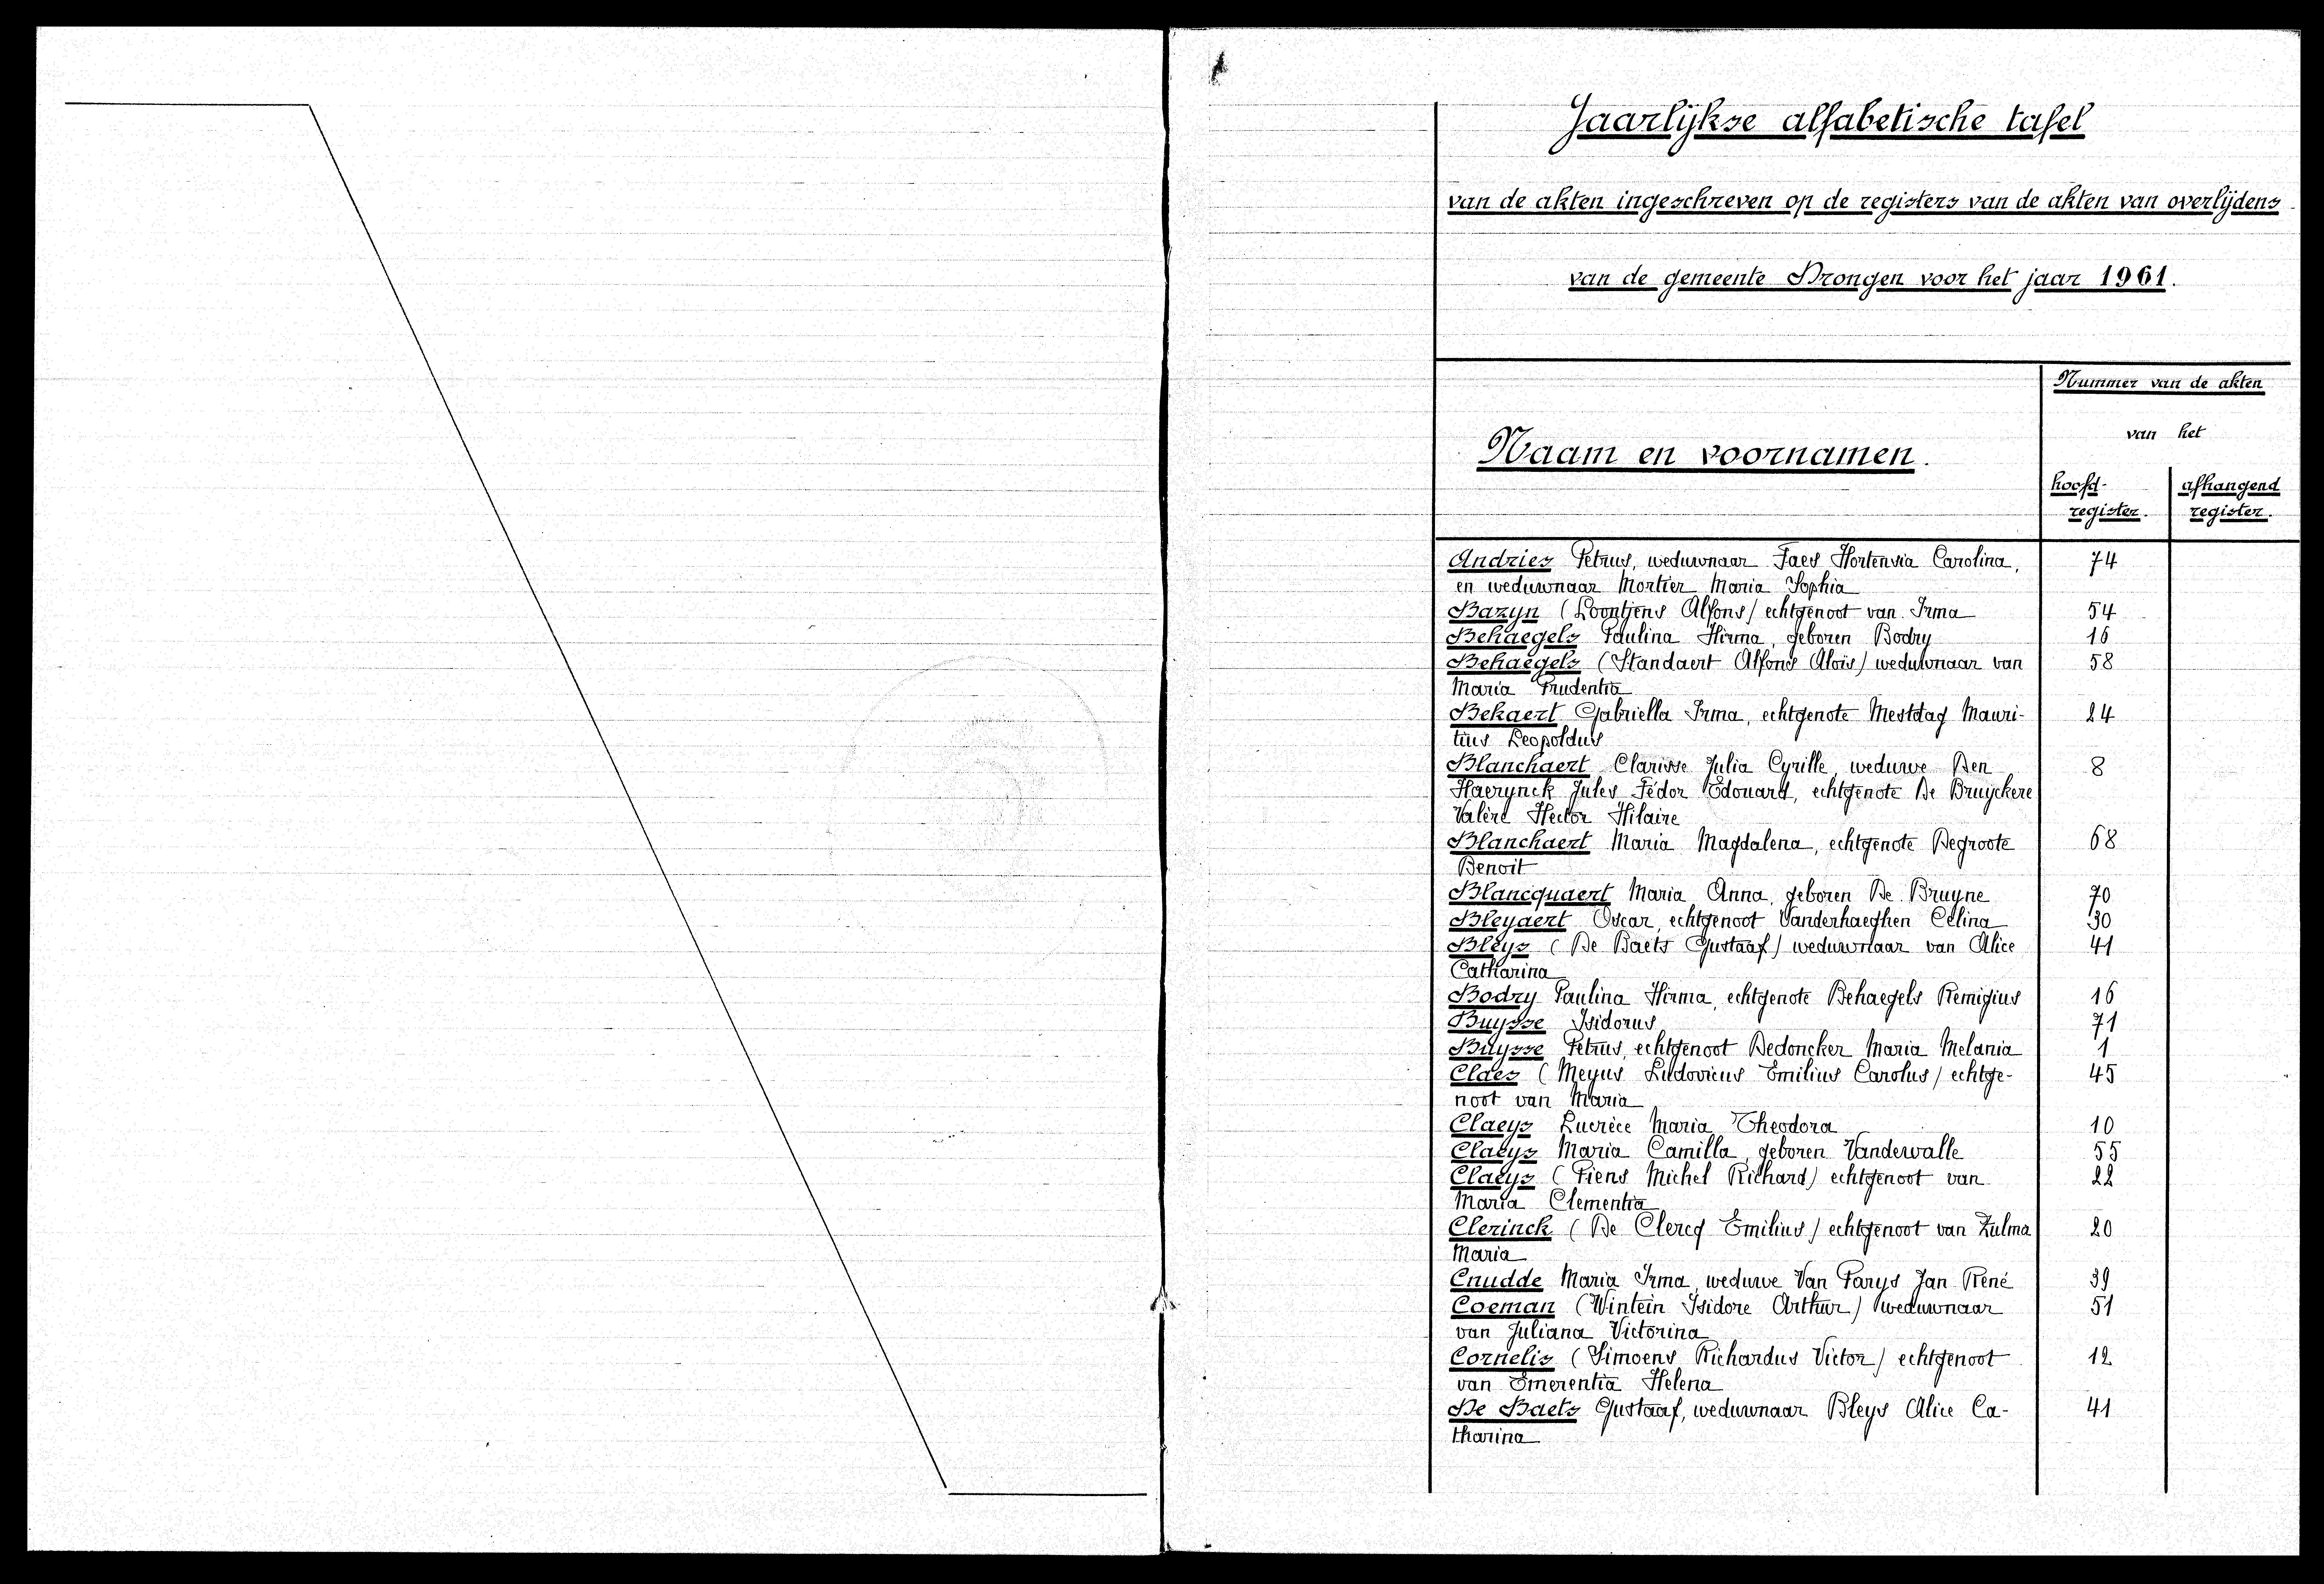 Jaarlijkse alfabetische tafel
van de akten ingeschreven op de registers van de akten van overlijdens
van de gemeente Drongen voor het jaar 1961.
Nummer van de akten
van het
Naam en voornamen.
hoofd- afhangend
register. register.
Andries Petrus, weduwnaar Faes Hortensia Carolina, 74
en weduwnaar Mortier Maria Sophia
Bazyn (Loontjens Alfons) echtgenoot van Irma 54
Behaegels Paulina Hirma, geboren Bodry 16
Behaegels (Standaert Alfons Alois) weduwnaar van 58
Maria Prudentia
Bekaert Gabriella Irma, echtgenote Mestdag Mauri- 24
tius Leopoldus
Blanchaert Clarisse Julia Cyrille, weduwe Den 8
Haerynck Jules Fédor Edouard, echtgenote De Bruyckere
Valère Hector Hilaire
Blanchaert Maria Magdalena, echtgenote Degroote 68
Benoit
Blancquaert Maria Anna, geboren De Bruyne 70
Bleyaert Oscar, echtgenoot Vanderhaeghen Celina 30
Bleys (De Baets Gustaaf) weduwnaar van Alice 41
Catharina
Bodry Paulina Hirma, echtgenote Behaegels Remigius 16
Buysse Isidorus 71
Buysse Petrus, echtgenoot Dedoncker Maria Melania 1
Claes (Meyus Ludovicus Emilius Carolus) echtge- 45
noot van Maria
Claeys Lucrèce Maria Theodora 10
Claeys Maria Camilla, geboren Vandewalle 55
Claeys (Fiens Michel Richard) echtgenoot van 22
Maria Clementia
Clerinck (De Clercq Emilius) echtgenoot van Zulma 20
Maria
Cnudde Maria Irma, weduwe Van Parys Jan René 39
Coeman (Wintein Isidore Arthur) weduwnaar 51
van Juliana Victorina
Cornelis (Simoens Richardus Victor) echtgenoot 12
van Emerentia Helena
De Baets Gustaaf, weduwnaar Bleys Alice Ca- 41
tharina